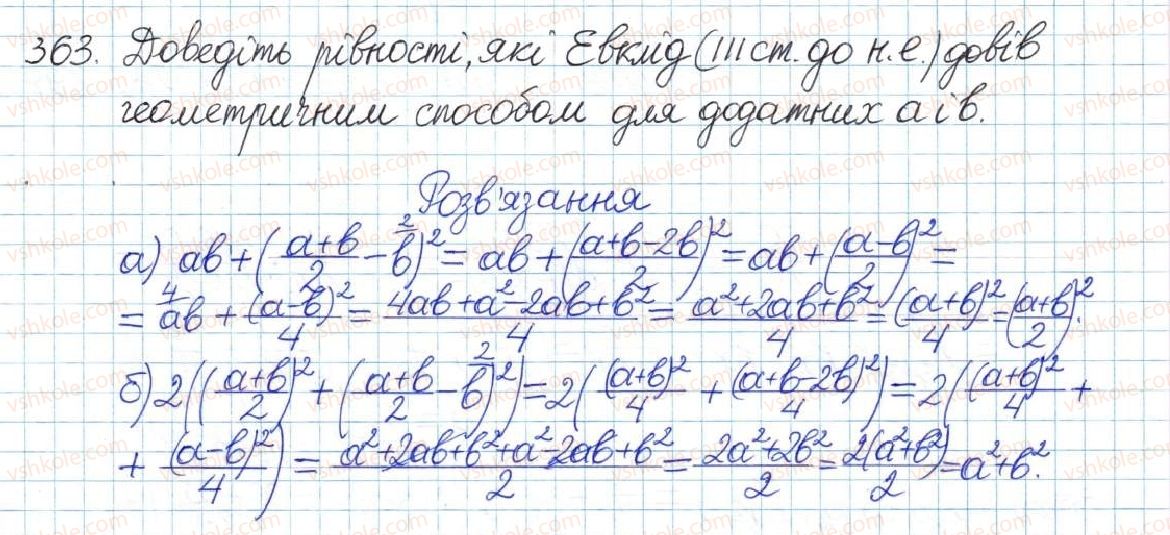 363. Доведіть рівності, які Евклід (III ст. до н.е.) довів
геометричним способом для додатних a і b.
Розв'язання
а) ab + ((a+b)/2 - b)² = ab + ((a+b-2b)/2)² = ab + ((a-b)/2)² =
= ab + (a-b)²/4 = (4ab+a²-2ab+b²)/4 = (a²+2ab+b²)/4 = (a+b)²/4 = ((a+b)/2)².
б) 2(((a+b)/2)² + ((a+b)/2 - b)²) = 2((a+b)²/4 + (a+b-2b)²/4) = 2((a+b)²/4 +
+ (a-b)²/4) = (a²+2ab+b²+a²-2ab+b²)/2 = (2a²+2b²)/2 = 2(a²+b²)/2 = a²+b².